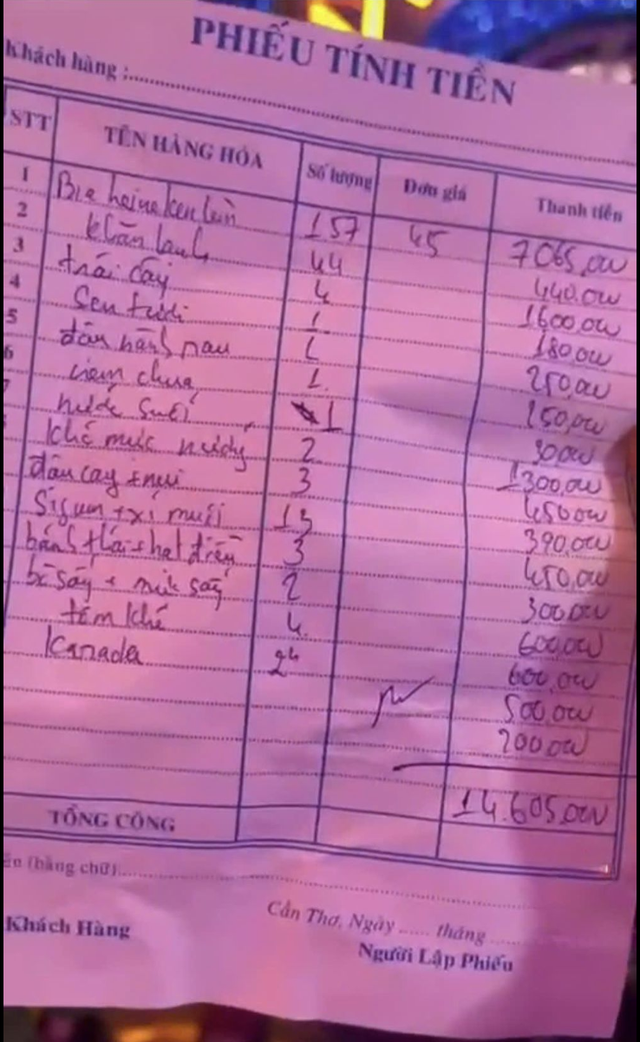 PHIẾU TÍNH TIỀN
Khách hàng :
STT TÊN HÀNG HÓA Số lượng Đơn giá Thành tiền
1 Bia heineken lùn 157 45 7065,000
2 khăn lạnh 44 440,000
3 trái cây 4 1600,000
4 Sen tươi 1 180,000
5 đậu nành rau 1 250,000
6 nem chua 1 150,000
nước suối 1 30000
Khô mực nướng 2 1300,000
đậu cay + nui 3 450,000
Sigum + xí muội 13 390,000
bánh + hạt điều 3 450,000
bò sấy + mít sấy 2 300,000
tôm khô 4 600,000
Kanada 24 600,000
500,000
200,000
14.605,000
TỔNG CỘNG
(bằng chữ)
Cần Thơ, Ngày ..... tháng
Khách Hàng Người Lập Phiếu